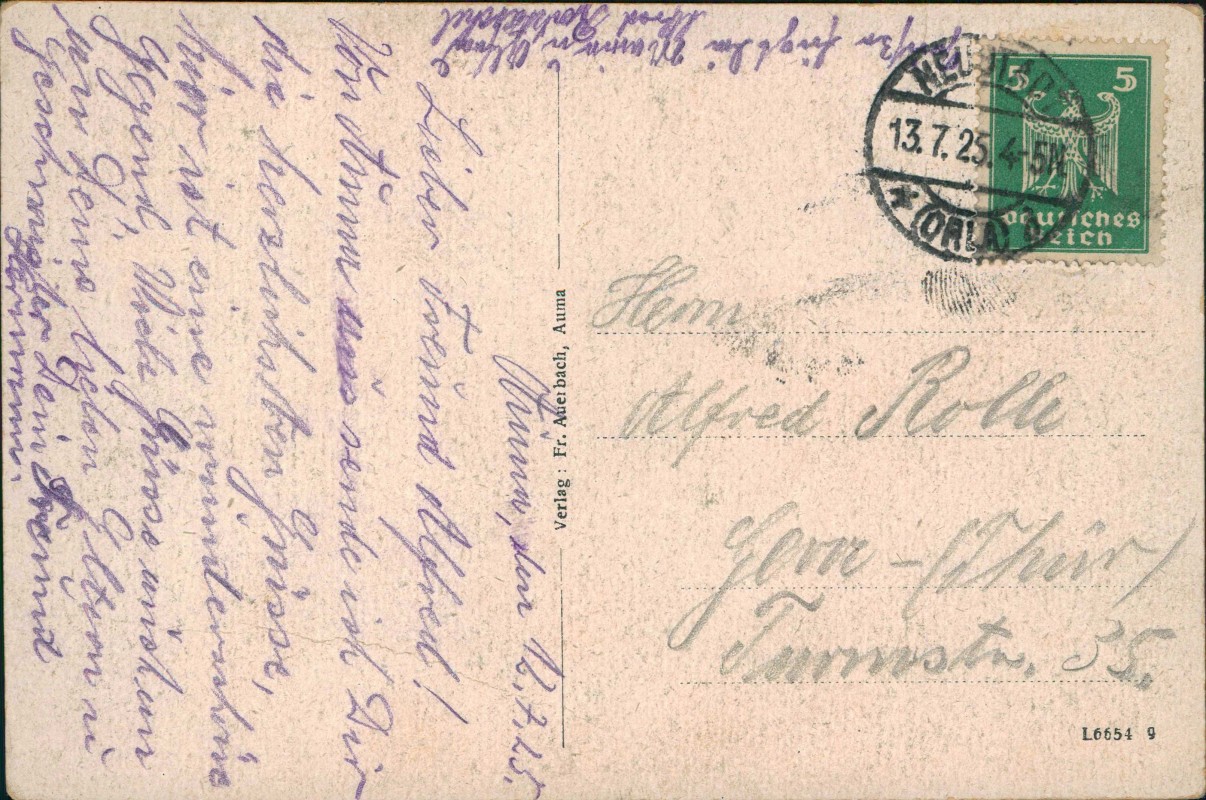 Auma, den 12.7.25.
Lieber Freund Alfred!
Von Auma aus sende ich Dir
die herzlichsten Grüsse,
hier ist eine wunderschöne
Gegend. Viele Grüsse auch an
Deine lieben Eltern u
Geschwister Dein Freund
Hermann.
Mama u
Alfred
Verlag: Fr. Auerbach, Auma
NEUSTADT
13.7.25. 4-5N
* (ORLA)
5 5
Deutsches
Reich
Herrn
Alfred Rolle
Gera - (Thür)
Turmstr. 35.
L6654 9